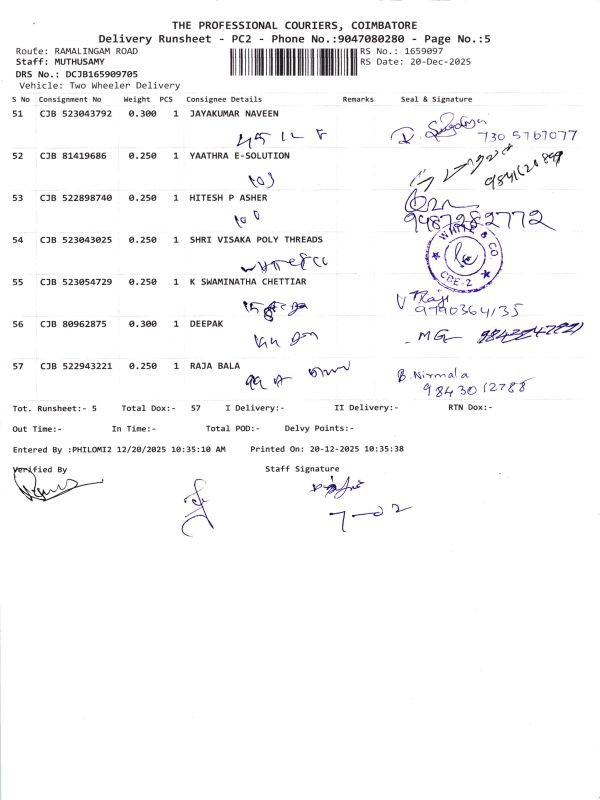 THE PROFESSIONAL COURIERS, COIMBATORE
Delivery Runsheet - PC2 - Phone No.:9047080280 - Page No.:5
Route: RAMALINGAM ROAD RS No.: 1659097
Staff: MUTHUSAMY RS Date: 20-Dec-2025
DRS No.: DCJB165909705
Vehicle: Two Wheeler Delivery
S No Consignment No Weight PCS Consignee Details Remarks Seal & Signature
51 CJB 523043792 0.300 1 JAYAKUMAR NAVEEN
730 5767077
52 CJB 81419686 0.250 1 YAATHRA E-SOLUTION
103
53 CJB 522898740 0.250 1 HITESH P ASHER
100 9487282772
54 CJB 523043025 0.250 1 SHRI VISAKA POLY THREADS
WHITE & CO
CBE-2
55 CJB 523054729 0.250 1 K SWAMINATHA CHETTIAR
V Raji
9790364135
56 CJB 80962875 0.300 1 DEEPAK
- MG
57 CJB 522943221 0.250 1 RAJA BALA
B. Nirmala
9843012788
Tot. Runsheet:- 5 Total Dox:- 57 I Delivery:- II Delivery:- RTN Dox:-
Out Time:- In Time:- Total POD:- Delvy Points:-
Entered By :PHILOMI2 12/20/2025 10:35:10 AM Printed On: 20-12-2025 10:35:38
Verified By Staff Signature
7-02